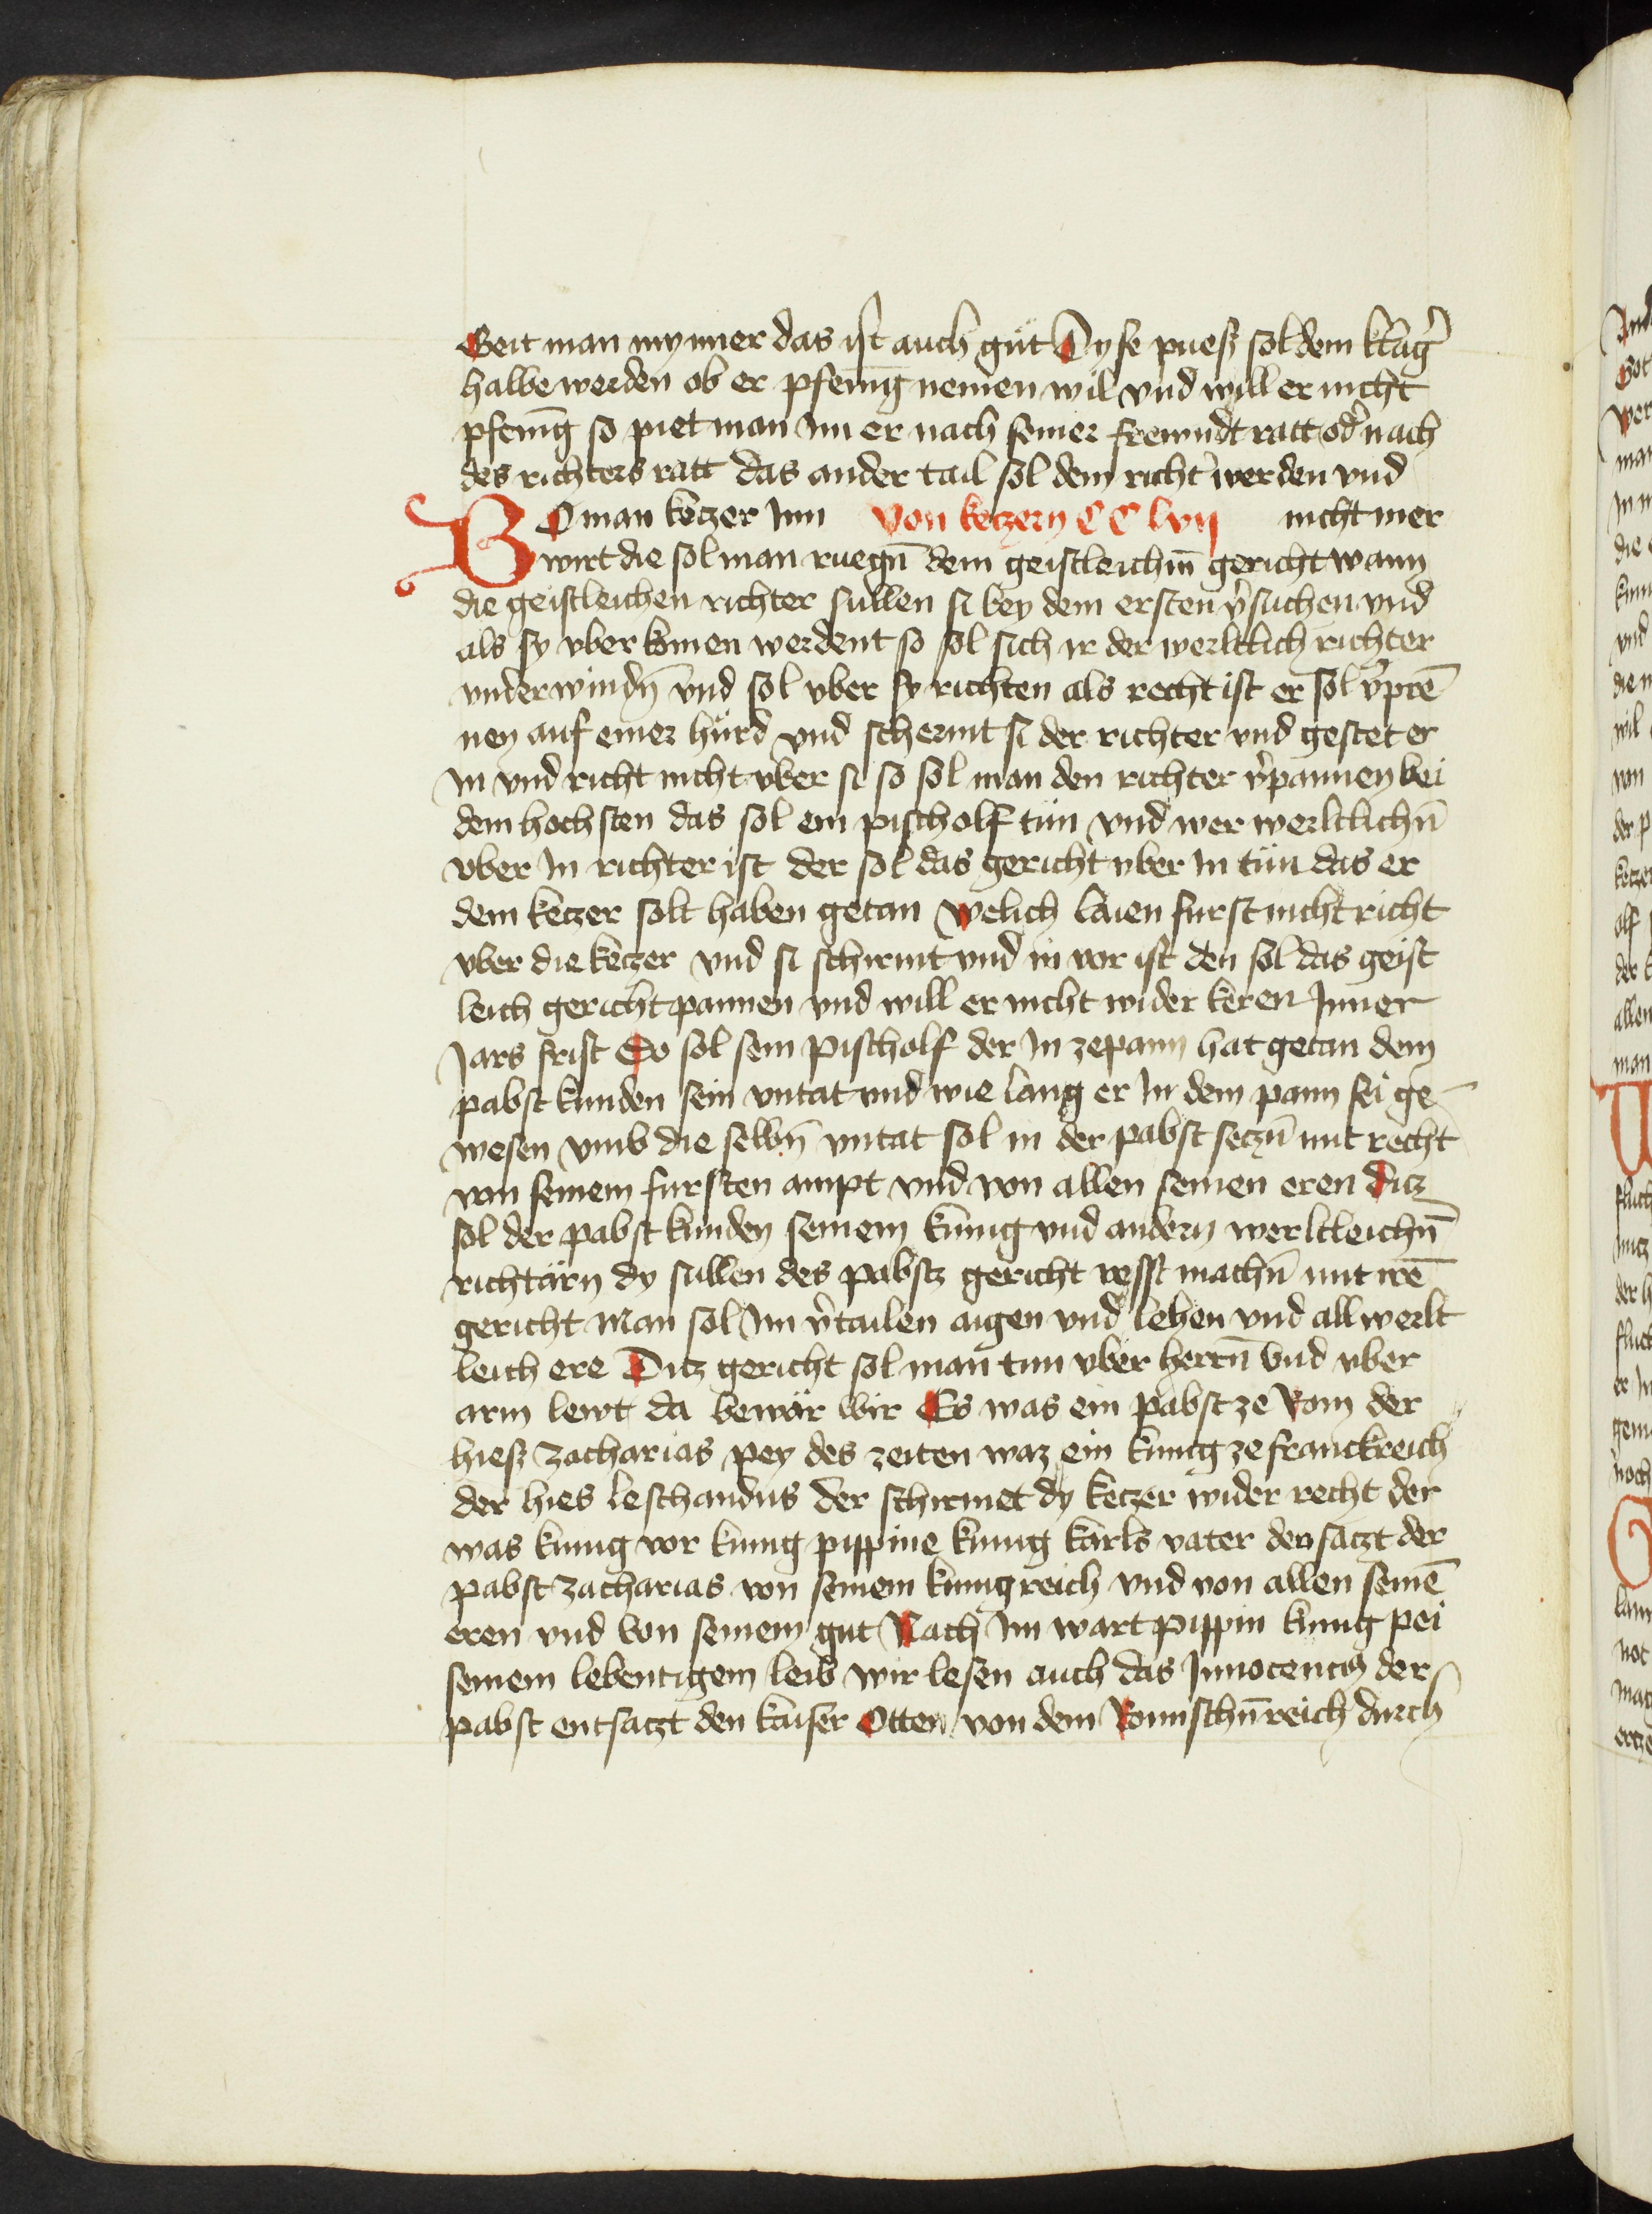 Geit man mynner das ist auch gůt Dyse puesz sol dem klag̾
halbe werden ob er pfenīg nemen wil vnd will er nicht
pfenīg so piet man im er nach seiner frewndt ratt od̾ nach
des richters ratt das ander tail sol dem richt̾ werden vnd
BO man keczer Inn Von keczern CC lvij nicht mer
wirt die sol man ruegn̄ dem geistleichm̄ gericht wann
die geistleichen richter sullen si bey dem ersten v̾suchen vnd
als sy vber komen werdent so sol sich ir der werltlich richter
vnderwindn̄ vnd sol vber sy richten als recht ist er sol v̾prē
nen auf einer hürd vnd schermt si der richter vnd gestet er
in vnd richt nicht vber si so sol man den richter v̾pannen bei
dem hochsten das sol ein pischolf tün vnd wer werltlichn̄
vber In richter ist der sol das gericht vber In tün das er
dem keczer solt haben getan Welich laien furst nicht richt
vber die keczer vnd si schirmt vnd in vor ist den sol das geist
leich gericht pannen vnd will er nicht wider keren Inner
Jars frist So sol sein pischolf der In ze pann hat getan dem
pabst kunden sein vntat vnd wie lang er In dem pann sei ge
wesen vmb die selbn̄ vntat sol in der pabst seczn̄ mit recht
von seinem fursten ampt vnd von allen seinen eren Ditz
sol der pabst kunden seinem kunig vnd andern werltleichn̄
richtärn dy sullen des pabstz gericht vesst machn̄ mit irē
gericht Man sol Im v̾tailen aigen vnd lehen vnd all werlt
leich ere Ditz gericht sol man tun vber herrn̄ Vnd vber
arm lewt da bewär wir Es was ein pabst ze Rom der
hiesz zacharias pey des zeiten waz ein kunig ze franckreich
der hies leschandus der schirmet dy keczer wider recht der
was kunig vor kunig pippine kunig karls vater den satzt der
pabst zacharias von seinem kunigreich vnd von allen seinē
eren vnd von seinem gut Nach Im wart pippin kunig pei
seinem lebentigem leib wir lesen auch das Innocencij der
pabst entsatzt den kaiser Otten von dem Romischn̄ reich durch